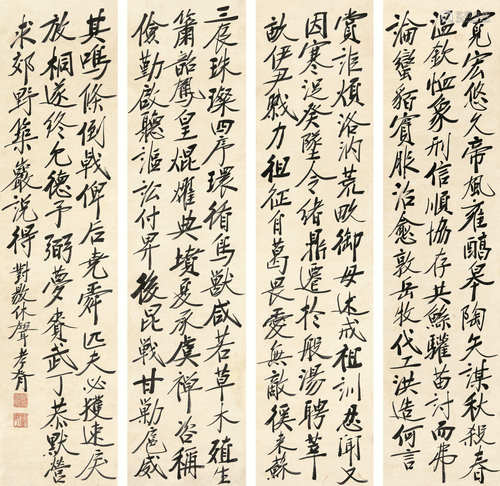 寬宏悠久帝風雍皋陶矢謀秋殺春
溫欽恤象刑信順協存共鯀驩苗討而弗
論蠻貊賓服治愈敦岳牧代工洪造何言
賞詎煩洛汭荒畋御母述戒祖訓忍聞又
因寒浞癸墜令緒鼎遷於殷湯聘莘
畝伊尹戮力祖征自葛畏愛無敵徯來蘇
三辰珠璨四序環循鳥獸咸若草木殖生
簫韶鳳皇焜耀典墳夏承虞禪咨稱
儉勤啟聽謳訟付畀後昆戰甘勦扈威
其鳴條倒戟俾后堯舜匹夫必獲速戾
放桐遂終允德予弼夢賚武丁恭默營
求郊野築巖說得對敭休聲孝胥